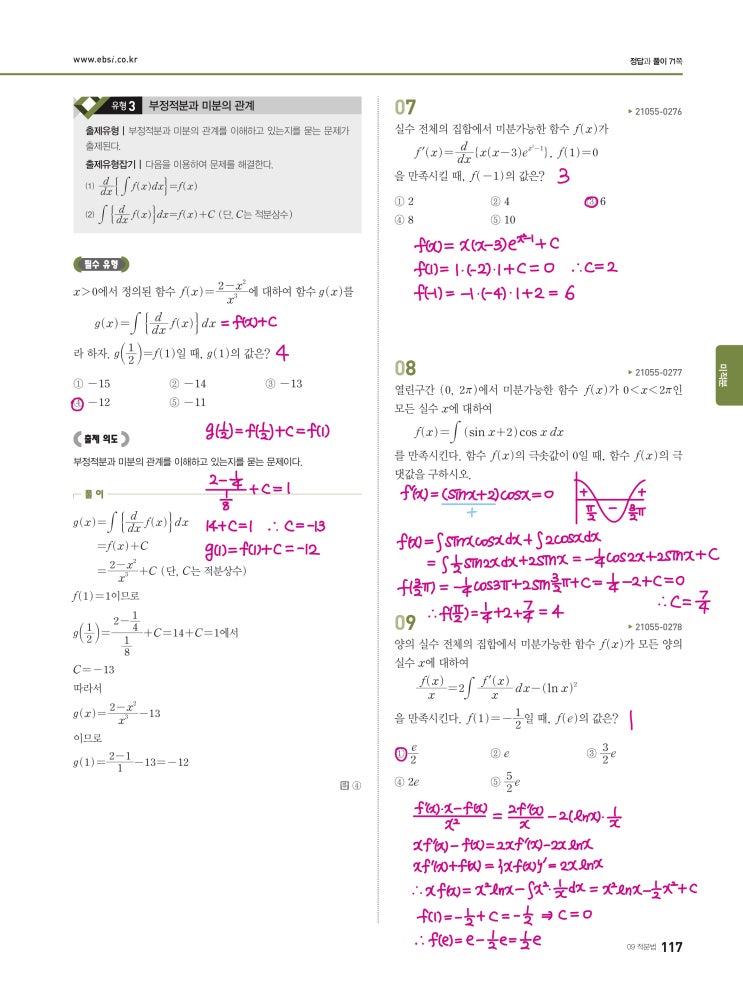 www.ebsi.co.kr
정답과 풀이 71쪽
유형 3 부정적분과 미분의 관계
출제유형 | 부정적분과 미분의 관계를 이해하고 있는지를 묻는 문제가
출제된다.
출제유형잡기 | 다음을 이용하여 문제를 해결한다.
(1) d/dx{∫f(x)dx}=f(x)
(2) ∫{d/dx f(x)}dx=f(x)+C (단, C는 적분상수)
필수 유형
x>0에서 정의된 함수 f(x)=(2-x²)/x³에 대하여 함수 g(x)를
g(x)=∫{d/dx f(x)}dx = f(x)+C
라 하자. g(1/2)=f(1)일 때, g(1)의 값은? 4
① -15 ② -14 ③ -13
④ -12 ⑤ -11
g(1/2)=f(1/2)+C=f(1)
출제 의도
부정적분과 미분의 관계를 이해하고 있는지를 묻는 문제이다.
(2-1/4)/(1/8)+C=1
풀이
g(x)=∫{d/dx f(x)}dx 14+C=1 ∴C=-13
=f(x)+C g(1)=f(1)+C=-12
=(2-x²)/x³+C (단, C는 적분상수)
f(1)=1이므로
g(1/2)=(2-1/4)/(1/8)+C=14+C=1에서
C=-13
따라서
g(x)=(2-x²)/x³-13
이므로
g(1)=(2-1)/1-13=-12
답 ④
07
▶ 21055-0276
실수 전체의 집합에서 미분가능한 함수 f(x)가
f'(x)=d/dx{x(x-3)e^(x²-1)}, f(1)=0
을 만족시킬 때, f(-1)의 값은? 3
① 2 ② 4 ③ 6
④ 8 ⑤ 10
f(x)=x(x-3)e^(x²-1)+C
f(1)=1·(-2)·1+C=0 ∴C=2
f(-1)=-1·(-4)·1+2=6
08
▶ 21055-0277
열린구간 (0, 2π)에서 미분가능한 함수 f(x)가 0<x<2π인
모든 실수 x에 대하여
f(x)=∫(sin x+2)cos x dx
를 만족시킨다. 함수 f(x)의 극솟값이 0일 때, 함수 f(x)의 극
댓값을 구하시오.
f'(x)=(sinx+2)cosx=0
+
+ - +
π/2 3/2π
f(x)=∫sinxcosxdx+∫2cosxdx
=∫1/2sin2xdx+2sinx=-1/4cos2x+2sinx+C
f(3/2π)=-1/4cos3π+2sin3/2π+C=1/4-2+C=0
∴C=7/4
∴f(π/2)=1/4+2+7/4=4
09
▶ 21055-0278
양의 실수 전체의 집합에서 미분가능한 함수 f(x)가 모든 양의
실수 x에 대하여
f(x)/x=2∫f'(x)/x dx-(ln x)²
을 만족시킨다. f(1)=-1/2일 때, f(e)의 값은? 1
① e/2 ② e ③ 3/2e
④ 2e ⑤ 5/2e
(f'(x)·x-f(x))/x²=2f'(x)/x-2(lnx)·1/x
xf'(x)-f(x)=2xf'(x)-2xlnx
xf'(x)+f(x)={xf(x)}'=2xlnx
∴xf(x)=x²lnx-∫x²·1/xdx=x²lnx-1/2x²+C
f(1)=-1/2+C=-1/2⇒C=0
∴f(e)=e-1/2e=1/2e
미적분
09 적분법 117